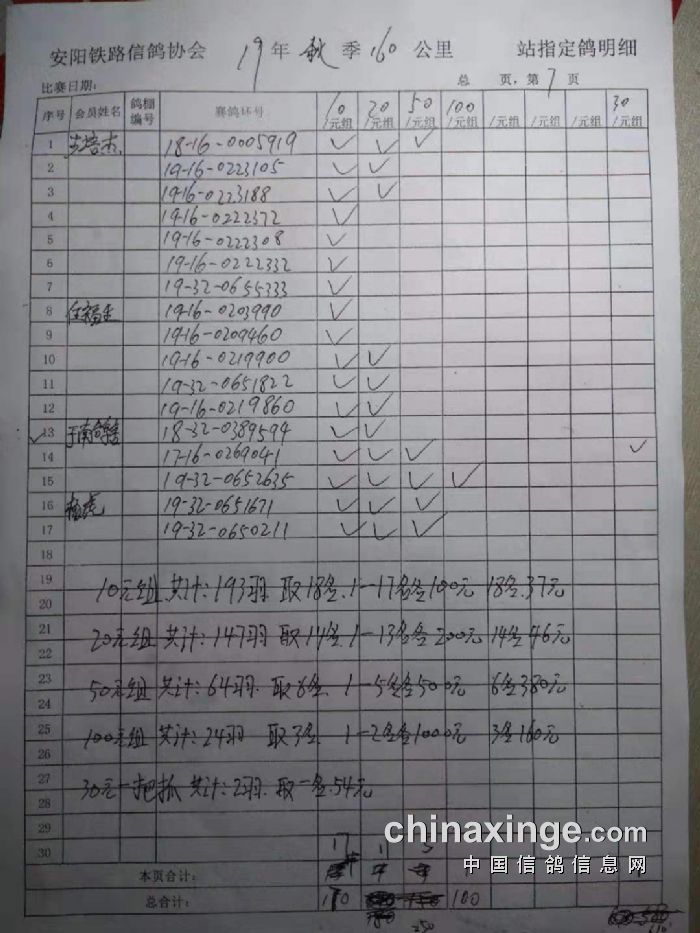 安阳铁路信鸽协会 19年 秋 季 160 公里 站指定鸽明细
比赛日期: 总 页,第 7 页
序号 会员姓名 鸽棚编号 赛鸽环号 10/元组 20/元组 50/元组 100/元组 /元组 /元组 /元组 30/元组
1 18-16-0005919 ✓ ✓ ✓
2 19-16-0223105 ✓ ✓
3 19-16-0223188 ✓ ✓
4 19-16-0222372 ✓
5 19-16-0222308 ✓
6 19-16-0222332 ✓
7 19-32-0655333 ✓
8 19-16-0203990 ✓
9 19-16-0209460 ✓
10 19-16-0219900 ✓ ✓
11 19-32-0651822 ✓ ✓
12 19-16-0219860 ✓ ✓
✓ 13 18-32-0389594 ✓ ✓
14 17-16-0269041 ✓ ✓ ✓ ✓
15 19-32-0652635 ✓ ✓ ✓ ✓
16 19-32-0651671 ✓ ✓ ✓
17 19-32-0650211 ✓ ✓ ✓
18
19
10元组 共计:193羽 取18名.1—17名各100元 18名.37元
20
21
20元组 共计:147羽 取14名.1—13名各200元 14名46元
22
23
50元组 共计:64羽. 取6名. 1—5名各500元 6名380元
24
25
100元组 共计:24羽 取3名. 1—2名各1000元 3名160元
26
27
30元一把抓 共计:2羽.取一名.54元
28
29
30
chinaxinge.com
中国信鸽信息网
本页合计:
总合计: 170 100